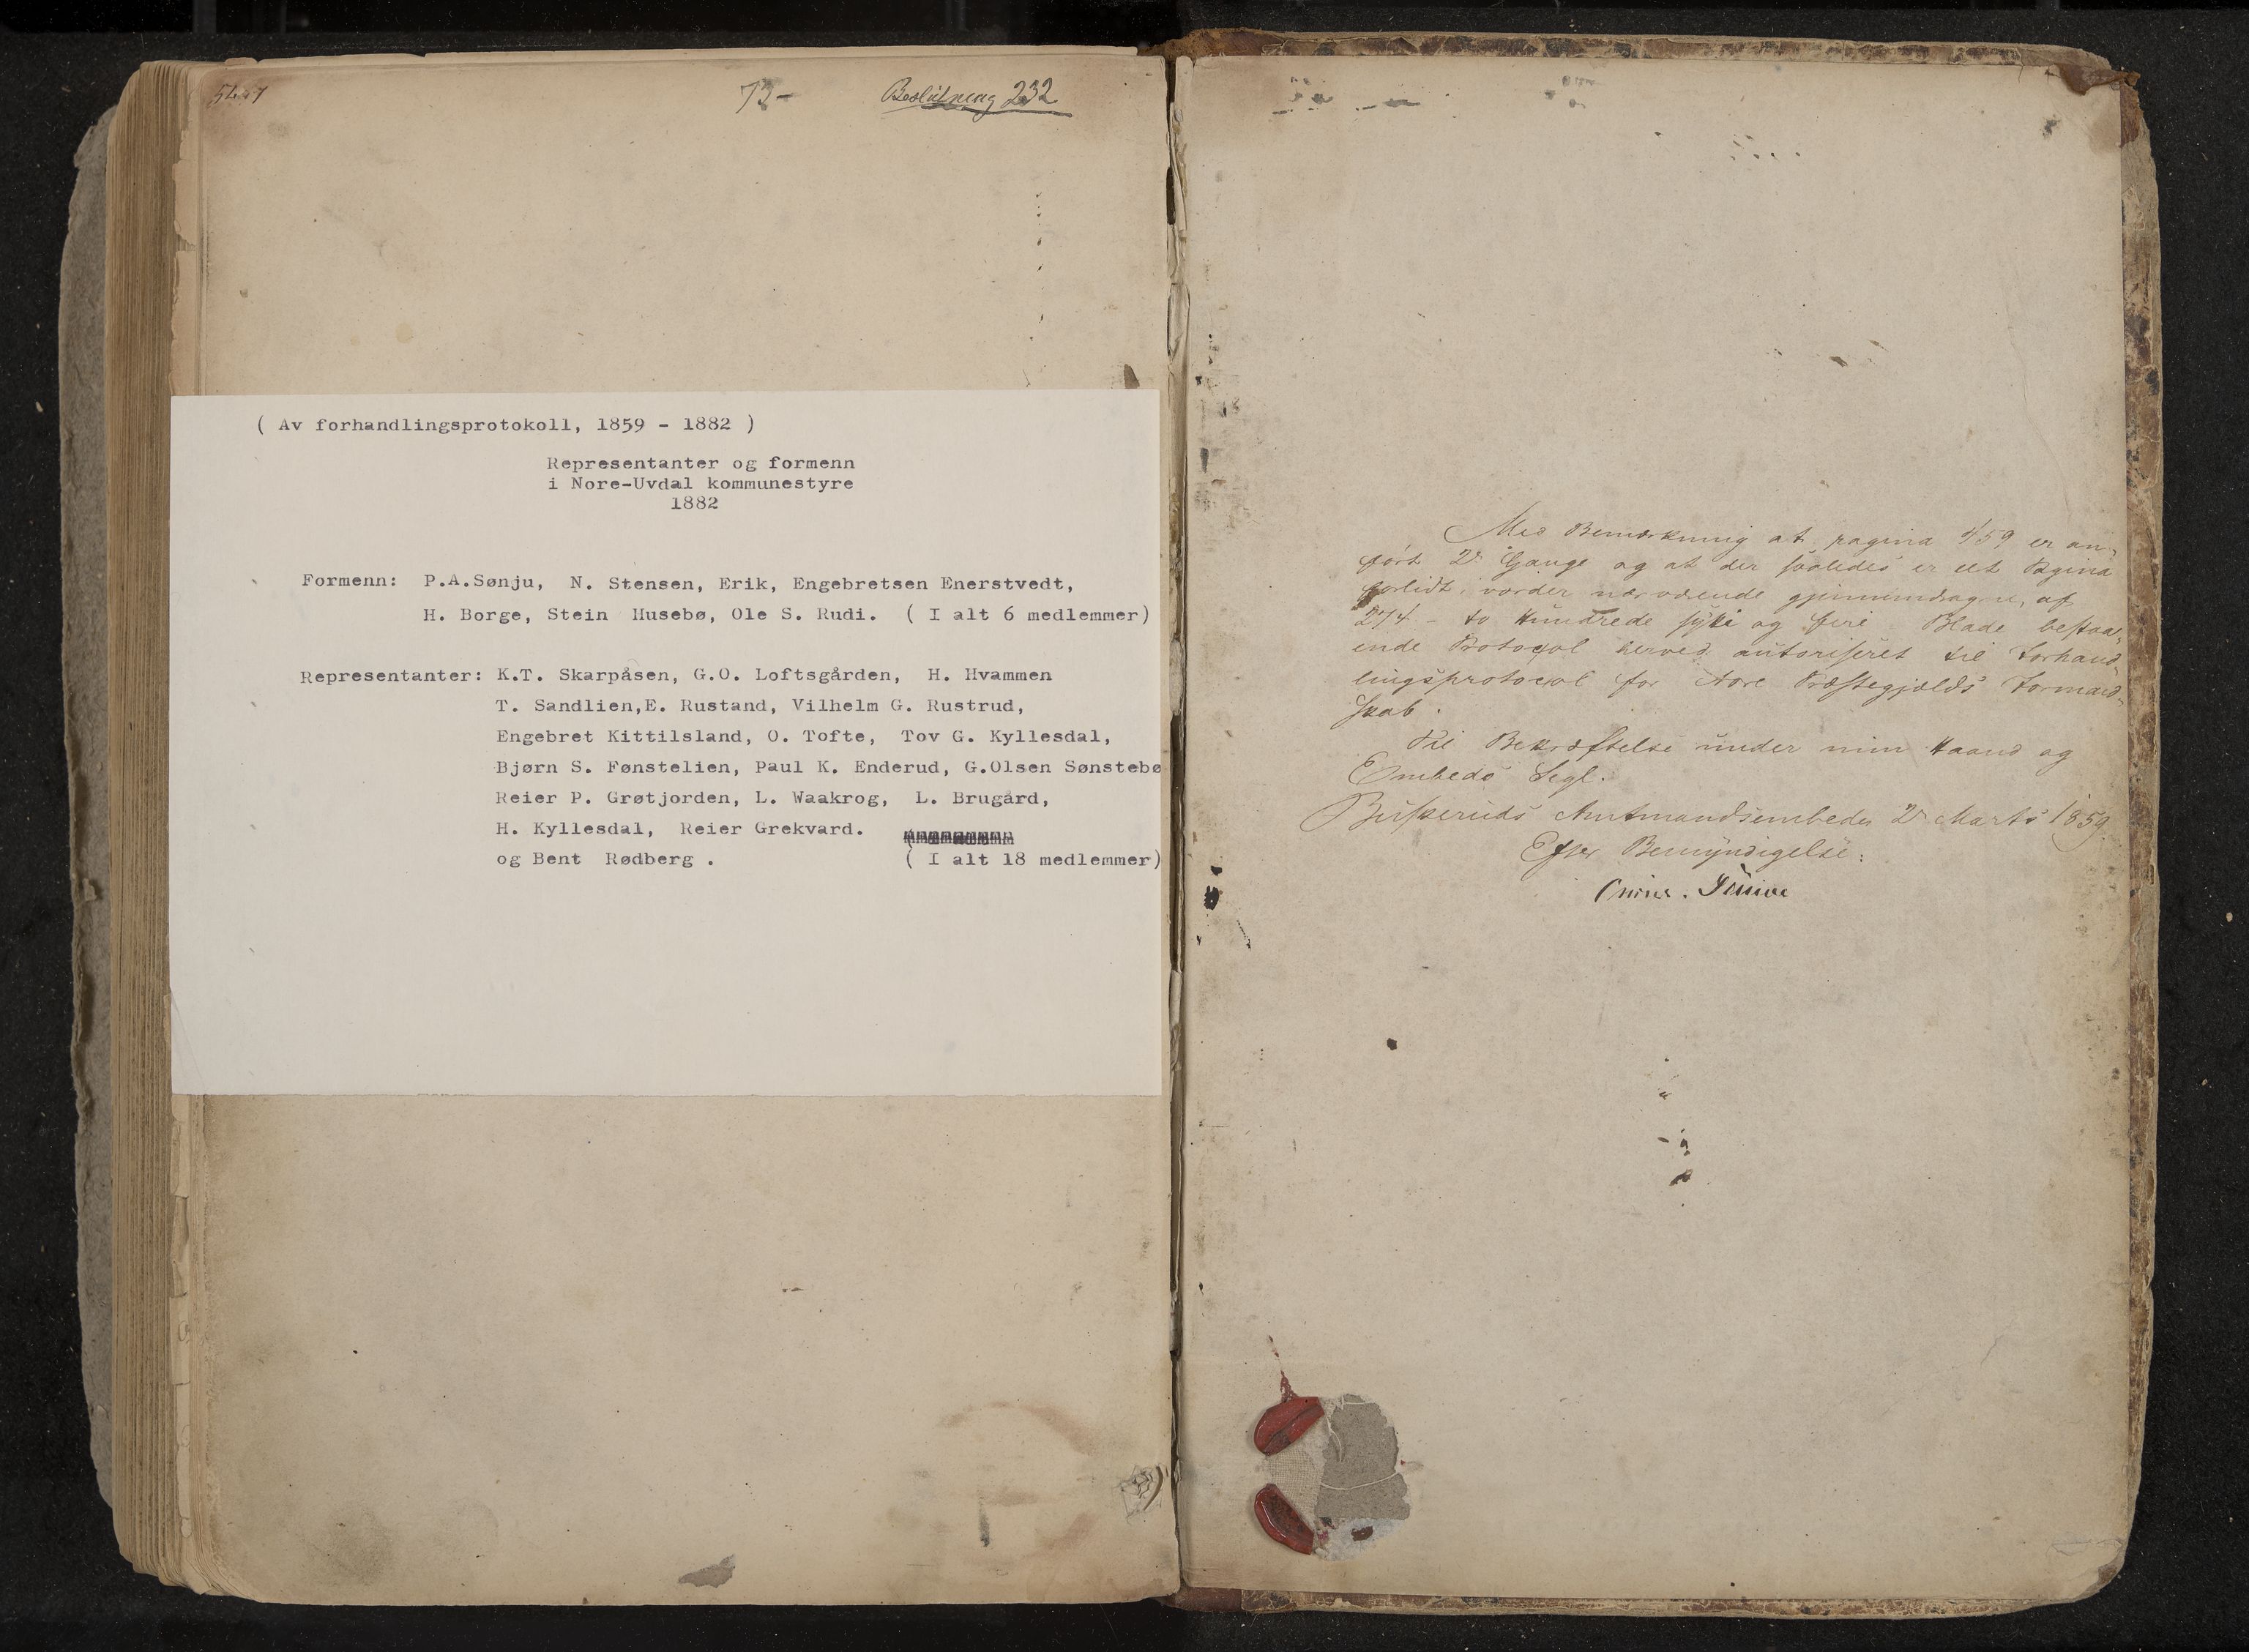 73-
Beslutning 232
( Av forhandlingsprotokoll, 1859 - 1882 )
Representanter og formenn
i Nore-Uvdal kommunestyre
1882
Formenn: P.A.Sønju, N. Stensen, Erik, Engebretsen Enerstvedt,
H. Borge, Stein Husebø, Ole S. Rudi. ( I alt 6 medlemmer)
Representanter: K.T. Skarpåsen, G.O. Loftsgården, H. Hvammen
T. Sandlien,E. Rustand, Vilhelm G. Rustrud,
Engebret Kittilsland, O. Tofte, Tov G. Kyllesdal,
Bjørn S. Fønstelien, Paul K. Enderud, G.Olsen Sønstebø
Reier P. Grøtjorden, L. Waakrog, L. Brugård,
H. Kyllesdal, Reier Grekvard.
og Bent Rødberg . ( I alt 18 medlemmer)
Med Bemærkning at pagina 459 er an-
ført 2de Gange og at der saaledes er et Pagina
forlidt, vorder nærværende gjennemdragne, af
274 - to Hundrede sytti og fire Blade bestaa-
ende Protocol herved autoriseret til Forhand-
lingsprotocol for Nore Præstegjælds Formand-
skab.
Til Bekræftelse under min Haand og
Embeds Segl.
Buskeruds Amtmandsembede 2de Marts 1859.
Efter Bemyndigelse: